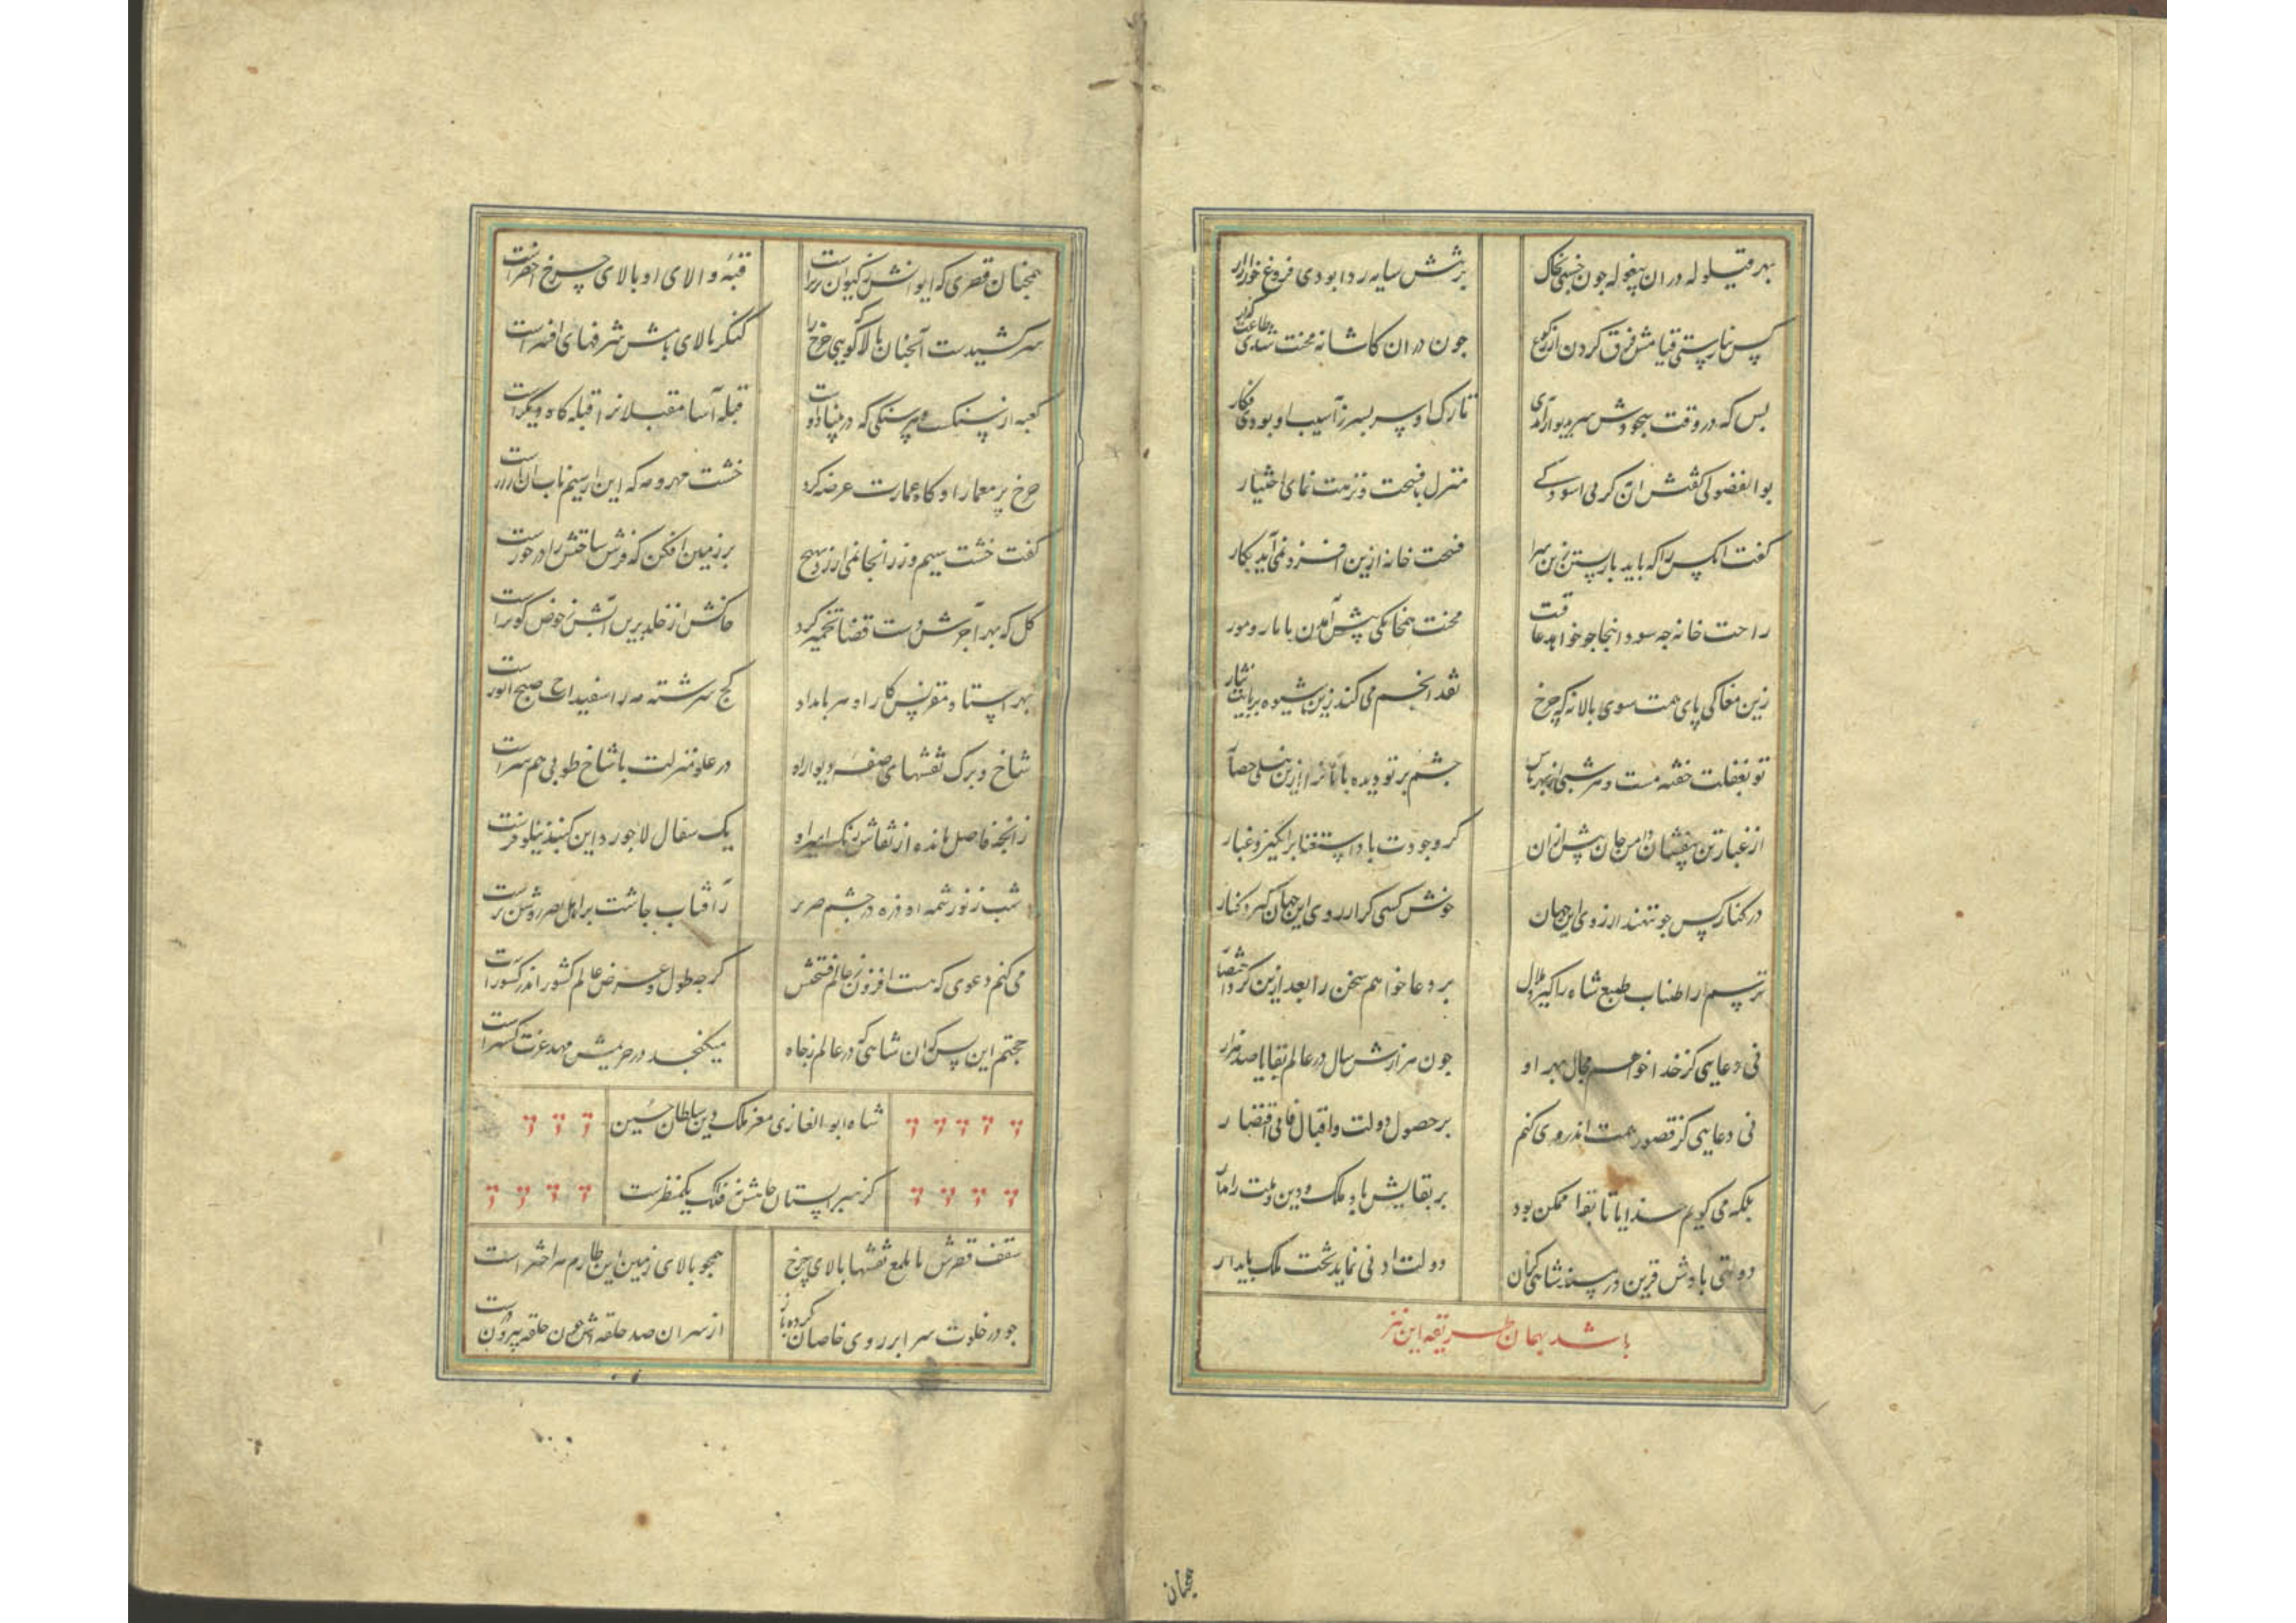 بهر قیلوله دران پیغوله چون خسبی بخاک
برتنش سایه ردا بودی فروغ خور ازار
پس نیارستی قیامش فرق کردن از رکوع
چون دران کاشانه محنت شدی طاعت گذار
بس که در وقت سجودش سر بدیوار آمدی
تارک او سر بسر ز آسیب او بودی فکار
بوالفضولی گفتش ان کز بی اسودکی
منزل با فسحت و نزهت نمای اختیار
گفت انکس را که باید بار بستن زین سرا
فسحت خانه ازین افزود نمی آید بکار
راحت خانه چه سود اینجا چو خواهد عاقبت
محنت همخانگی پیش آمدن با مار و مور
زین مغاکی پای همت سوی بالا نه که چرخ
نقد انجم می کند زین شیوه بر پایت نثار
تو بغفلت خفته مست و هر شبی از بهر پاس
چشم بر تو دیده بانانرا ازین نیلی حصار
از غبار تن بیفشان دامن جان پیش ازان
کز وجودت باد استغنا برانگیزد غبار
در کنار کس چو ننهند ارزوی این جهان
خوش کسی کز ارزوی این جهان گیرد کنار
ترسم ار اطناب طبع شاه را گیرد ملال
بر دعا خواهم سخن را بعد ازین کرد اختصار
نی دعایی کز خدا خواهم مجال بهر او
چون هزارش سال در عالم بقا یا صد هزار
نی دعایی کز قصور همت اندر وی کنم
بر حصول دولت و اقبال فانی اقتصار
بلکه می گویم خدایا تا بقا ممکن بود
بر بقایش باد ملک و دین و ملت را مدار
دولتی بادش قرین در مسند شاهی کان
دولت ادنی نماید تخت ملک پایدار
باشد بهمان طریقه این نیز
همچنان
همچنان قصری که ایوانش ز کیوان برتر است
قبهٔ والای او بالای چرخ اخضر است
سر کشیدست آنچنان بالا که گویی چرخ را
کنگر بالای بامش شرفهای افسر است
کعبه از سنگست و هر سنگی که در بنیاد اوست
قبله آسا مقبلانرا قبله گاه دیگر است
چرخ پر معمار او گاه عمارت عرضه کرد
خشت مهر و مه که این از سیم ناب ان از زر است
گفت خشت سیم و زر انجا نمی ارزد بهیچ
بر زمین افکن که فرش ساحتش را در خور است
گل که بهر آجرش دست قضا تخمیر کرد
خاکش از خلد برین آبش ز حوض کوثر است
بهر استاد مقرنس کار او هر بامداد
گچ سرشته مه ز اسفیداج صبح انور است
شاخ و برگ نقشهای صفه و دیوار او
در علو منزلت با شاخ طوبی هم سر است
زانچه فاضل مانده از نقاش رنگ امیز او
یک سفال لاجورد این گنبد نیلوفر است
شب ز نور شمسه او ذره در چشم ضریر
ز آفتاب چاشت بر اهل بصر روشن تر است
می کنم دعوی که هست افزون ز عالم فسحتش
گرچه طول و عرض عالم کشور اندر کشور است
حجتم این بس که ان شاهی که در عالم ز جاه
می نگنجد در حریمش مهد عزت گستر است
شاه ابوالغازی معز ملک و دین سلطان حسین
کز سیر استان جاهش نه فلک یک منظر است
سقف قصرش با ملمع نقشها بالای چرخ
همچو بالای زمین این طارم مه اختر است
چو در خلوت سرا بر روی خاصان کرده باز
از سران صد حلقه اش چون حلقه بیرون در است